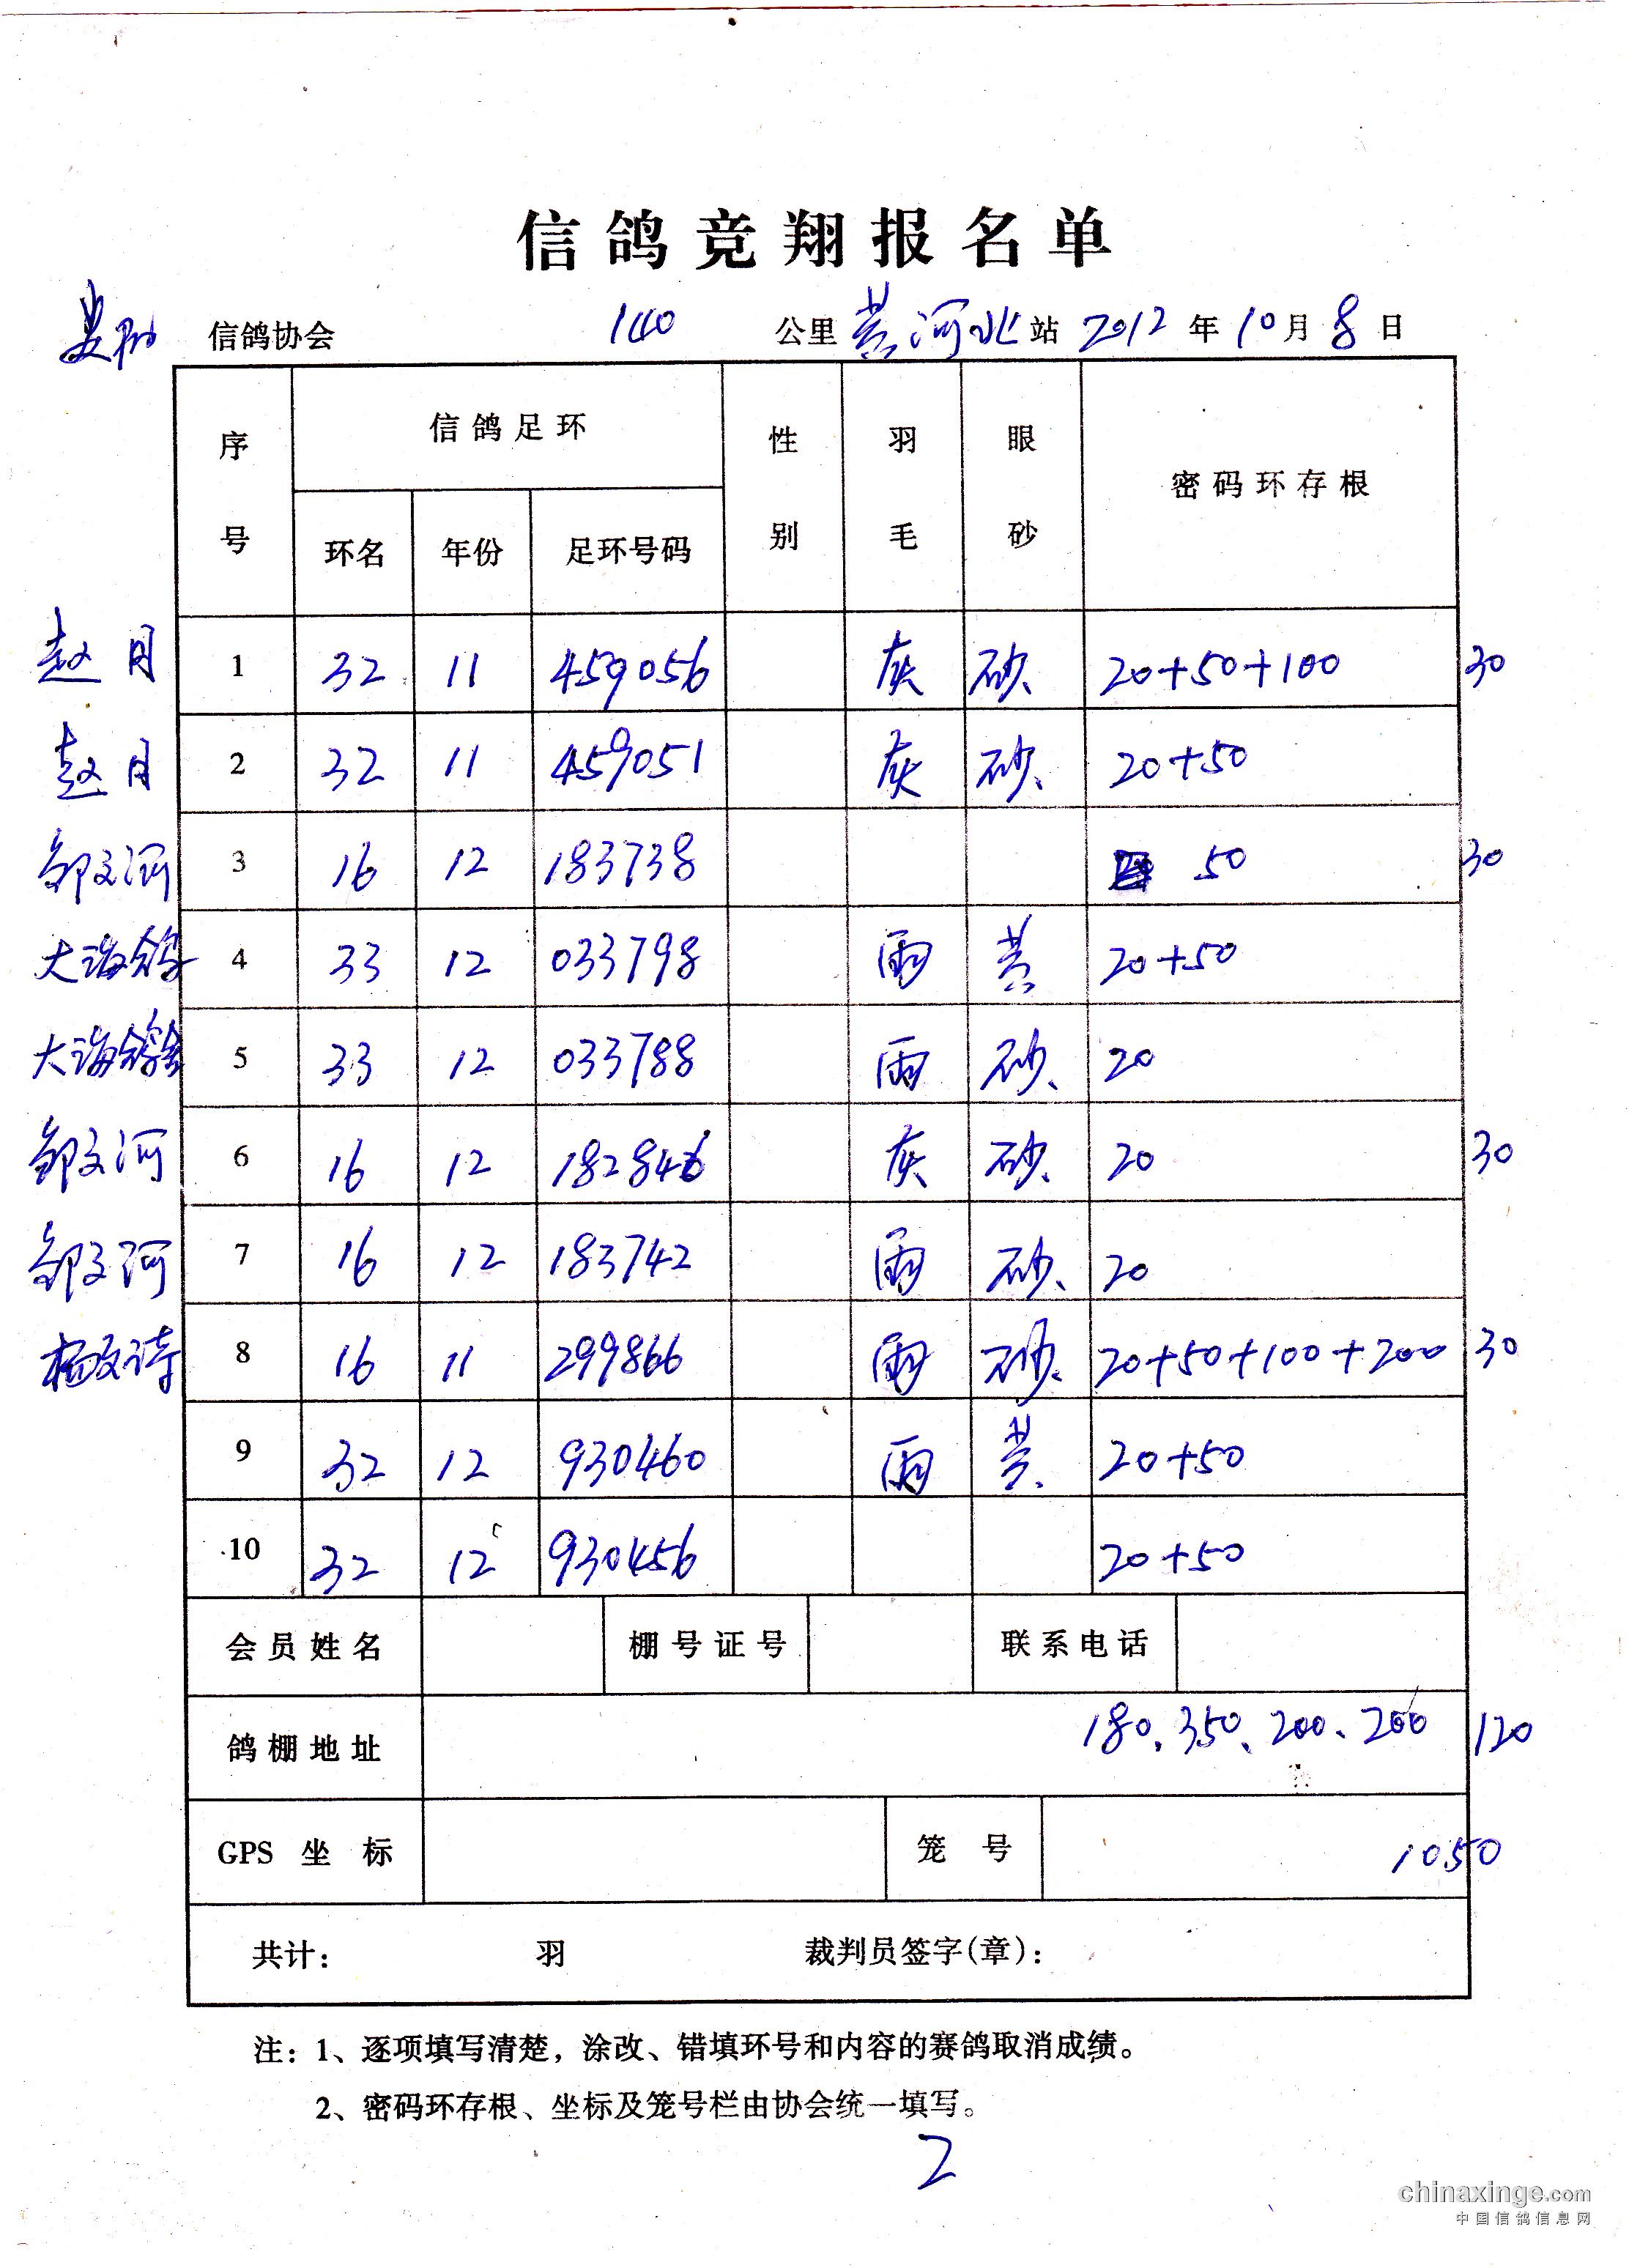 信鸽竞翔报名单
信鸽协会 140 公里 黄河北 站 2012 年 10 月 8 日
序号 信鸽足环 性别 羽毛 眼砂 密码环存根
环名 年份 足环号码
赵月 1 32 11 459056 灰 砂 20+50+100 30
赵月 2 32 11 459051 灰 砂 20+50
邹文河 3 16 12 183738 50 30
大海鸽 4 33 12 033798 雨 黄 20+50
大海鸽舍 5 33 12 033788 雨 砂 20
邹文河 6 16 12 182846 灰 砂 20 30
邹文河 7 16 12 183742 雨 砂 20
杨文涛 8 16 11 299866 雨 砂 20+50+100+200 30
9 32 12 930460 雨 黄 20+50
10 32 12 930456 20+50
会员姓名 棚号证号 联系电话
鸽棚地址 180、350、200、200 120
GPS 坐标 笼号 1050
共计： 羽 裁判员签字(章)：
注：1、逐项填写清楚，涂改、错填环号和内容的赛鸽取消成绩。
2、密码环存根、坐标及笼号栏由协会统一填写。
2
chinaxinge.com
中国信鸽信息网